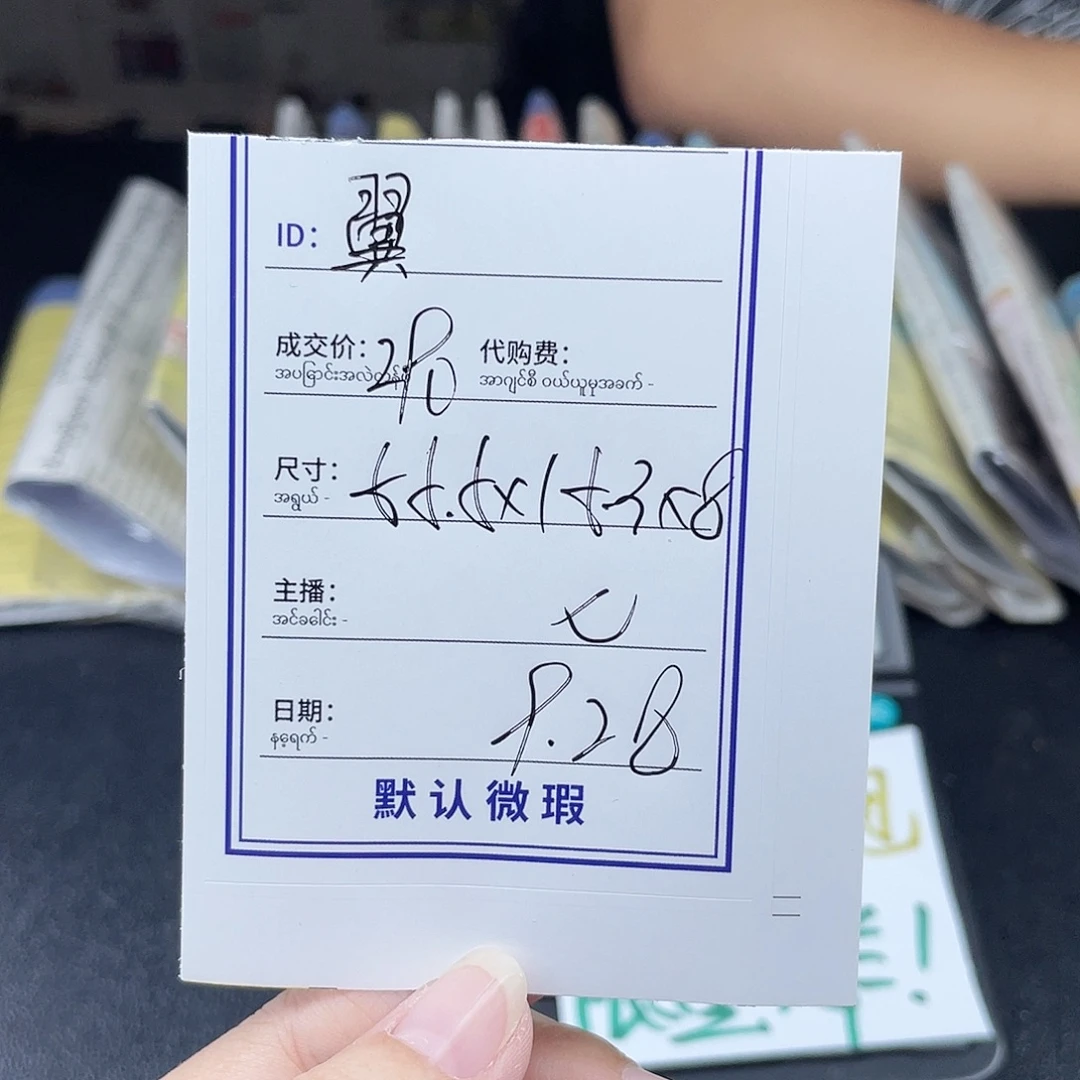 ID: 翼
成交价: 290 代购费:
အပြောင်းအလဲတန်ဖိုး အာဂျင်စီ ဝယ်ယူမှုအခက် -
尺寸: 55.5x15.3x8
အရွယ် -
主播: 七
အင်ခဓေါင်း -
日期: 9.28
နေ့ရက် -
默认微瑕